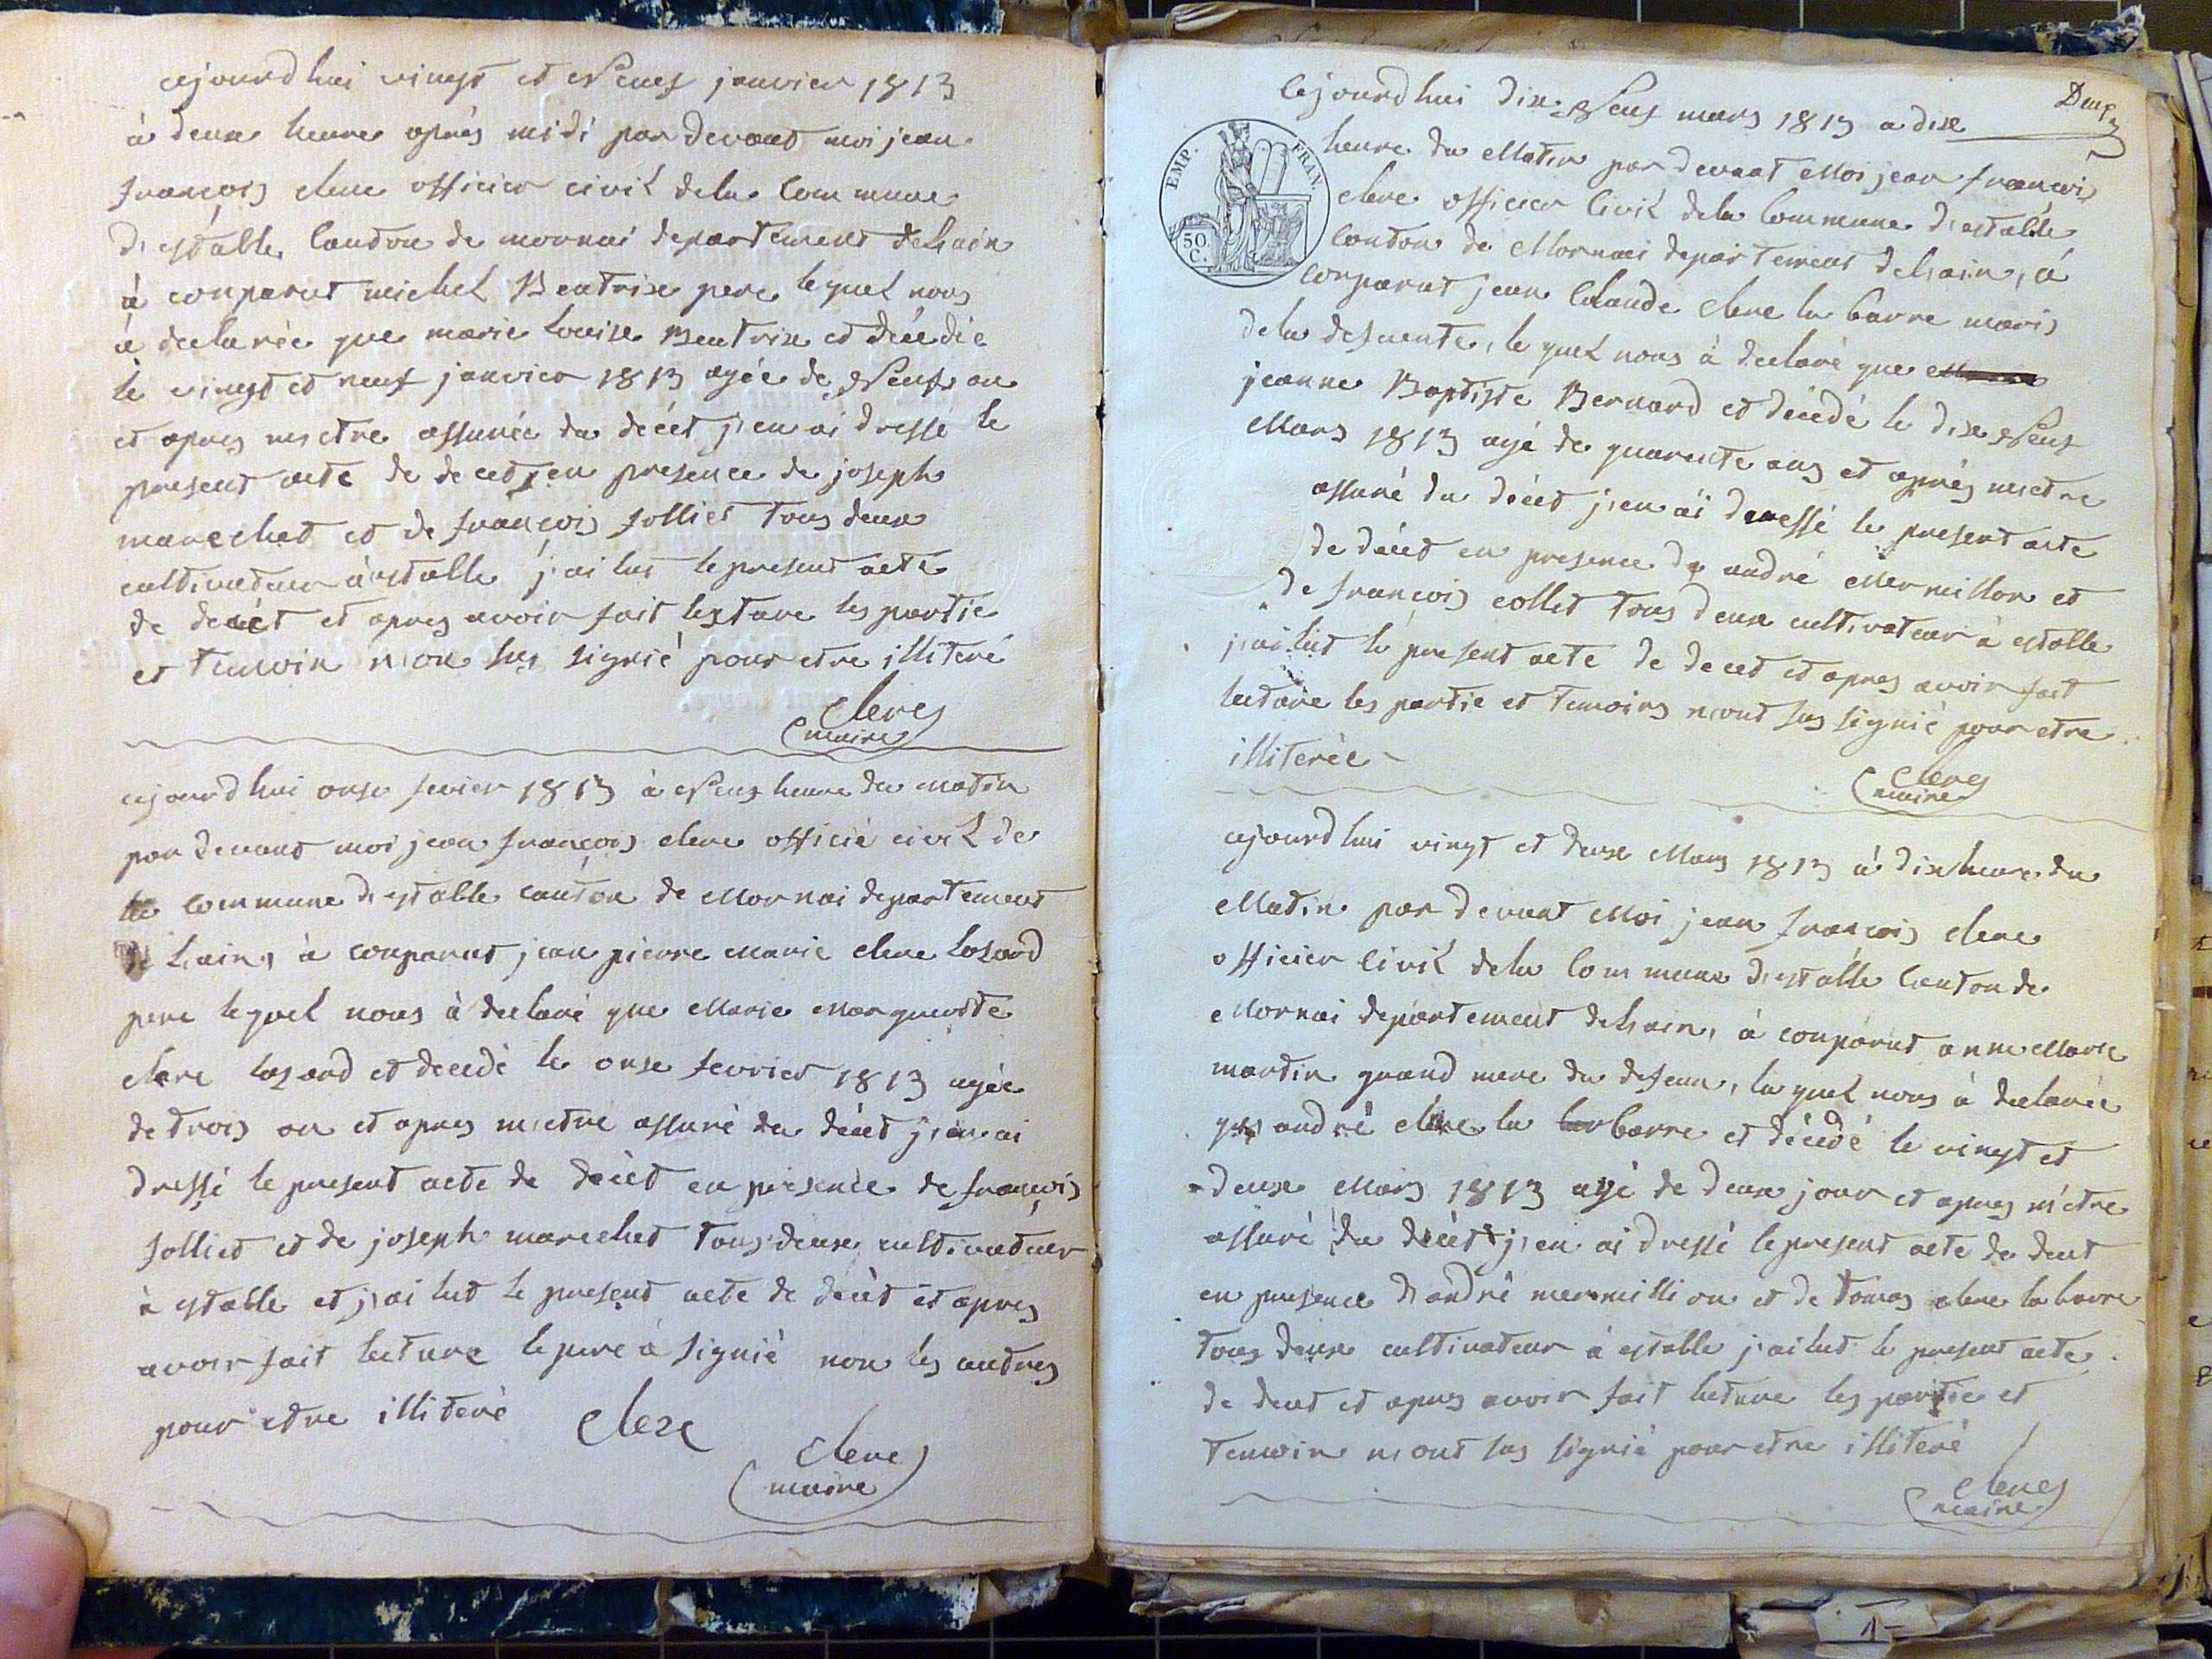 cejourd hui vingt et Neuf janvier 1813
à deux heure après midi par devant moi jean
françois clerc officier civil dela Commune
d, estable, Canton de mornai departement delain
à conparut michel Beatrix pere lequel nous
à declarée que marie louise Beatrix et décédée
le vingt et neuf janvier 1813 agée de Neuf an
et apres m, etre assurée du décét j, en ai dressé le
present acte de decet en presence de joseph
marechet et de françois jolliet tous deux
cultivateur à estable j'ai lut le present acte
de decét et apres avoir fait lecture les partie
et temoin n, on sus signié pour etre illiteré
clerc
maire
cejourd hui onse fevier 1813 à Neuf heure du matin
par devant moi jean françois clerc officié civil de
la commune d, estable canton de Mornai departement
de l, ain, à conparut jean pierre Marie clerc losard
pere lequel nous à declaré que Marie Marguerite
clerc losard et decedé le onse fevrier 1813 agée
de trois an et apres m, etre assuré du décét j, en ai
dressé le present acte de décèt en presence de françois
jolliet et de joseph marechet tous deux cultivateur
à estable et j, ai lut le present acte de décèt et apres
avoir fait lecture le pere à signié non les autres
pour etre illiteré clerc
clerc
maire
Cejourd hui dix Neuf mars 1813 a dix
EMP. FRAN.
50. C.
heure du Matin par devant Moi jean françois
clerc officier Civil dela Commune d, estable,
Canton de Mornai departement delain, à
Conparut jean Claude clerc la barre maris
dela defuente, le quel nous à declaré que
jeanne Baptiste Bernard et décédé le dix Neuf
Mars 1813 agé de quarente ans et après m, etre
assuré du décét j, en ai dressé le present acte
de décét en presence de andré Mermillon et
de françois collet tous deux cultivateur à estable
j, ai lut le present acte de decet et apres avoir fait
lecture les partie et temoins n, ont sus signié pour etre
illiterée
clerc
maire
cejourd hui vingt et deux Mars 1813 à dix heure du
Matin par devant Moi jean françois clerc
officier Civil dela Commune d, estable Canton de
Mornai departement delain, à conparut anne Marie
martin grand mere du defeun, la quel nous à declarée
que andré clerc la barre et décédé le vingt et
deux Mars 1813 agé de deux jour et apres m'etre
assuré du décét j, en ai dressé le present acte de decet
en presence d, andré mermillion et de tomas clerc la barre
tous deux cultivateur à estable j, ai lut le present acte
de decet et apres avoir fait lecture les partie et
temoin n, ont sus signié pour etre illiteré
clerc
maire